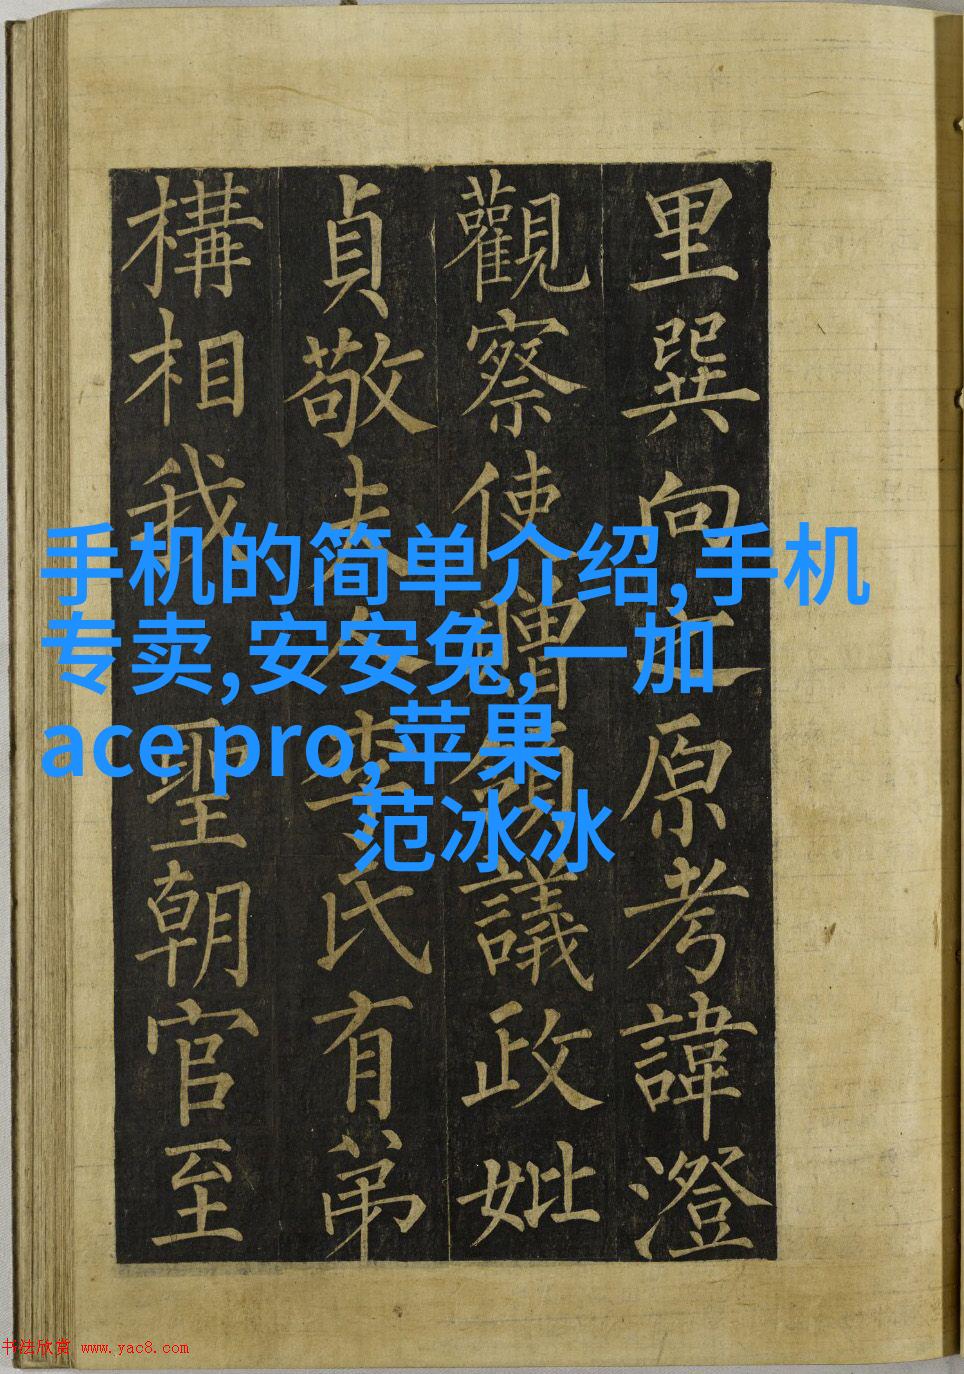 里巽向原考諱澄
觀察使贈領議政妣
貞敬夫人李氏有弟
構相我聖朝官至
手机的简单介绍,手机
专卖,安安兔,一加
ace pro,苹果
范冰冰
书法欣赏 www.yac8.com